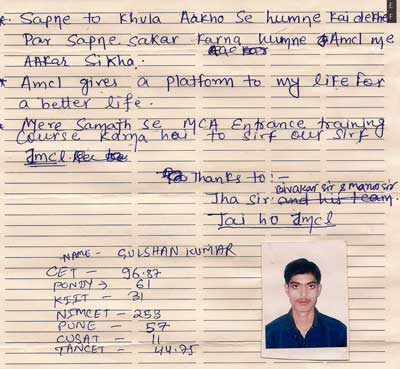 * Sapne to Khula Aakho Se humne Kai dekhe
Par Sapne Sakar Karna humne Amcl me
AAKar Sikha.
* Amcl gives a platform to my life for
a better life.
* Mere Samajh se MCA Entrance training
Course Karna hai to Sirf our Sirf
Amcl
Thanks to :-
Divakar sir & Manoj sir
Jha Sir and his team.
Jai ho Amcl
NAME - GULSHAN KUMAR
CET - 96.87
PONDY → 61
KIIT - 31
NIMCET - 253
PUNE - 57
CUSAT - 11
TANCET - 44.75